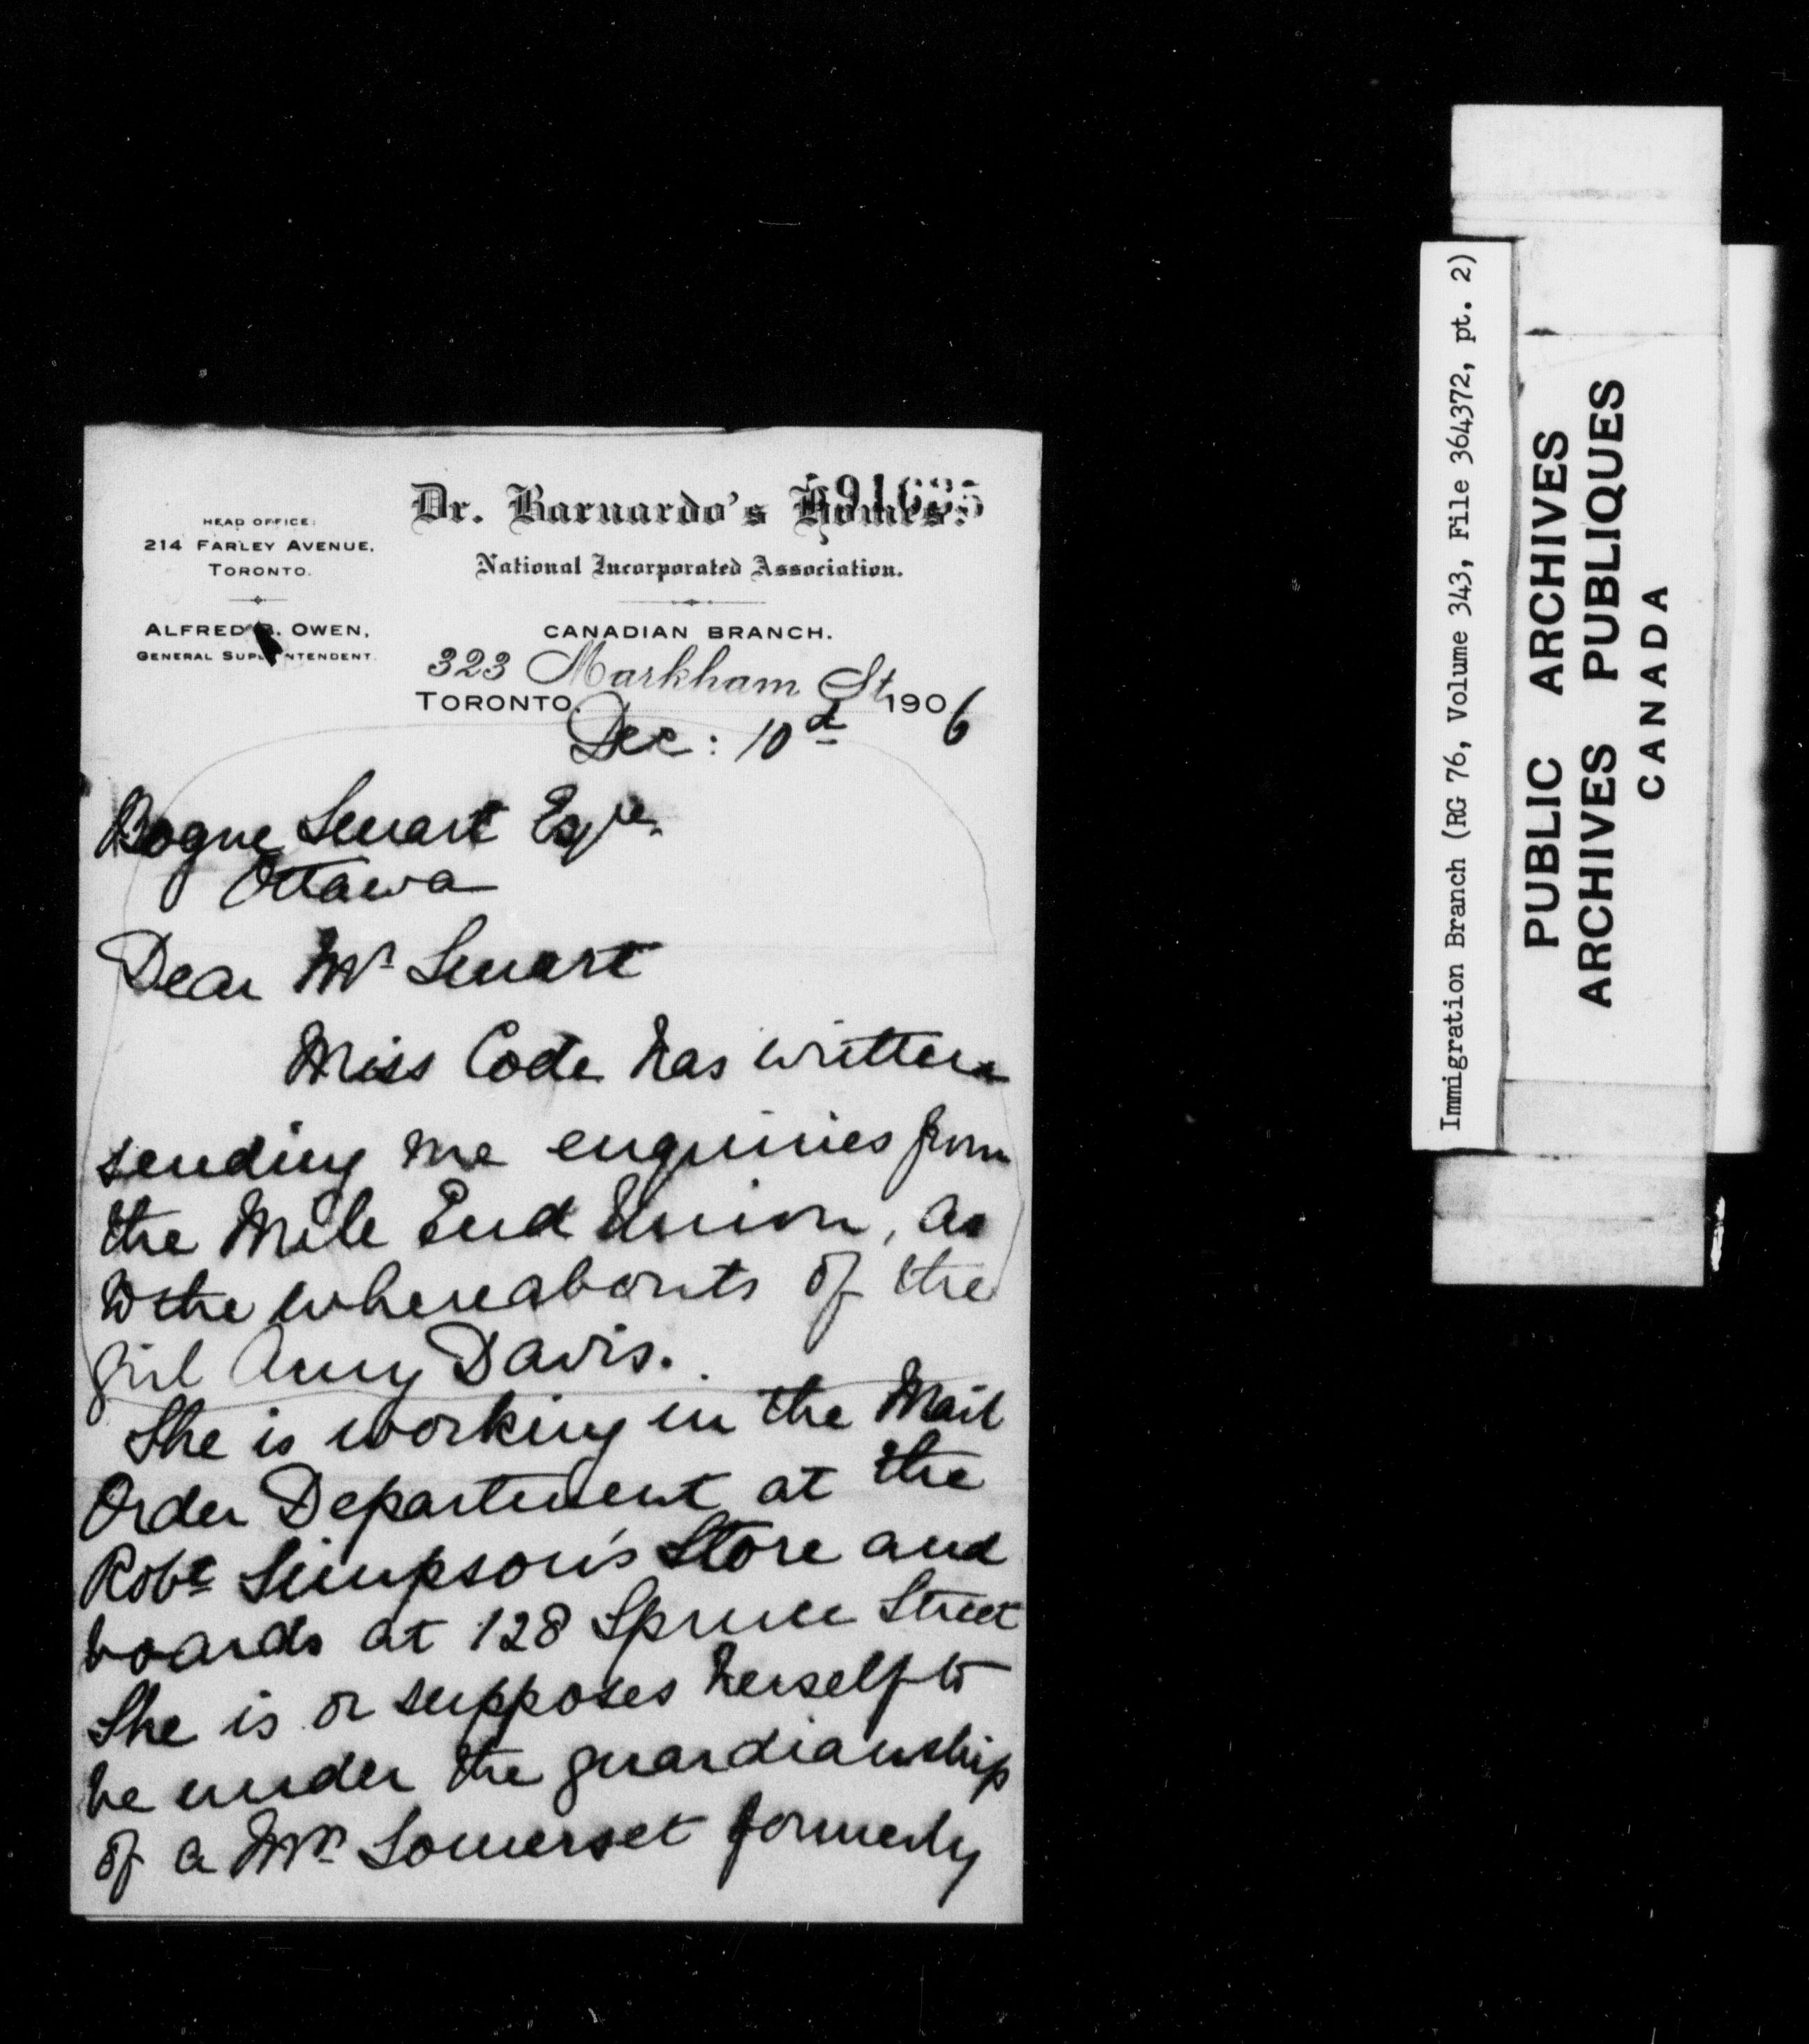 HEAD OFFICE:
214 FARLEY AVENUE,
TORONTO.
ALFRED B. OWEN,
GENERAL SUPERINTENDENT.
Dr. Barnardo's Homes:
National Incorporated Association.
CANADIAN BRANCH.
323 Markham St
TORONTO, 1906
Dec: 10th
Bogue Smart Esqre.
Ottawa
Dear Mr Smart
Miss Code has written
sending me enquiries from
the Mile End Union, as
to the whereabouts of the
girl Amy Davis.
She is working in the Mail
Order Department at the
Robt Simpson's Store and
boards at 128 Spruce Street
She is or supposes herself to
be under the guardianship
of a Mrs Somerset formerly
Immigration Branch (RG 76, Volume 343, File 364372, pt. 2)
PUBLIC ARCHIVES
ARCHIVES PUBLIQUES
CANADA